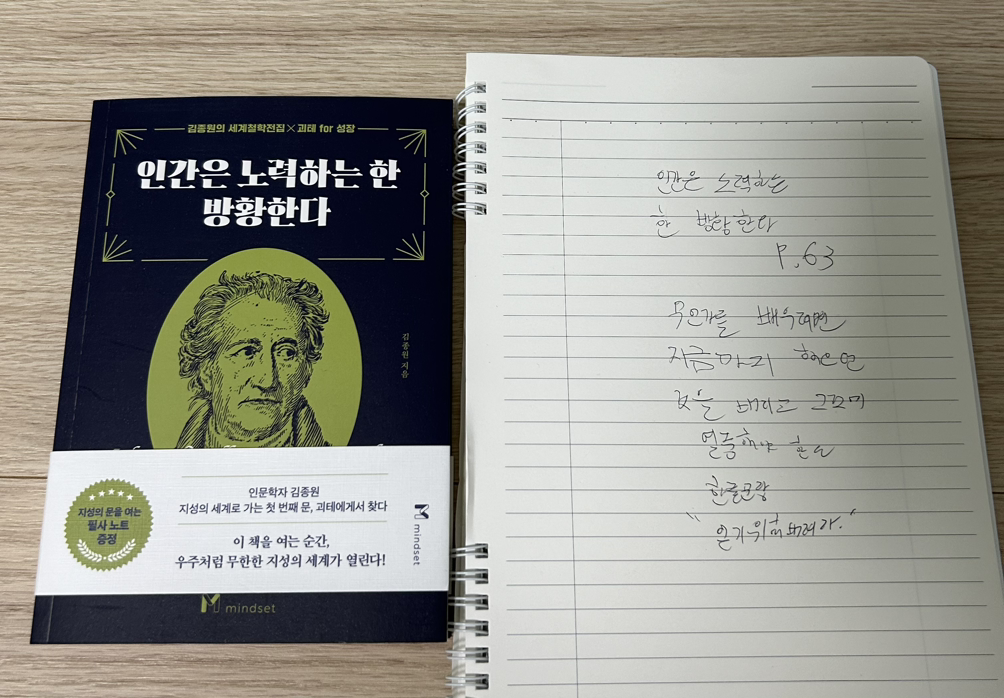 김종원의 세계철학전집×괴테 for 성장
인간은 노력하는 한
방황한다
김종원 지음
지성의 문을 여는
필사 노트
증정
인문학자 김종원
지성의 세계로 가는 첫 번째 문, 괴테에게서 찾다
이 책을 여는 순간,
우주처럼 무한한 지성의 세계가 열린다!
mindset
mindset
인간은 노력하는
한 방황한다
P.63
무언가를 배우려면
지금까지
것을 버리고
한다
한줄
버려라."